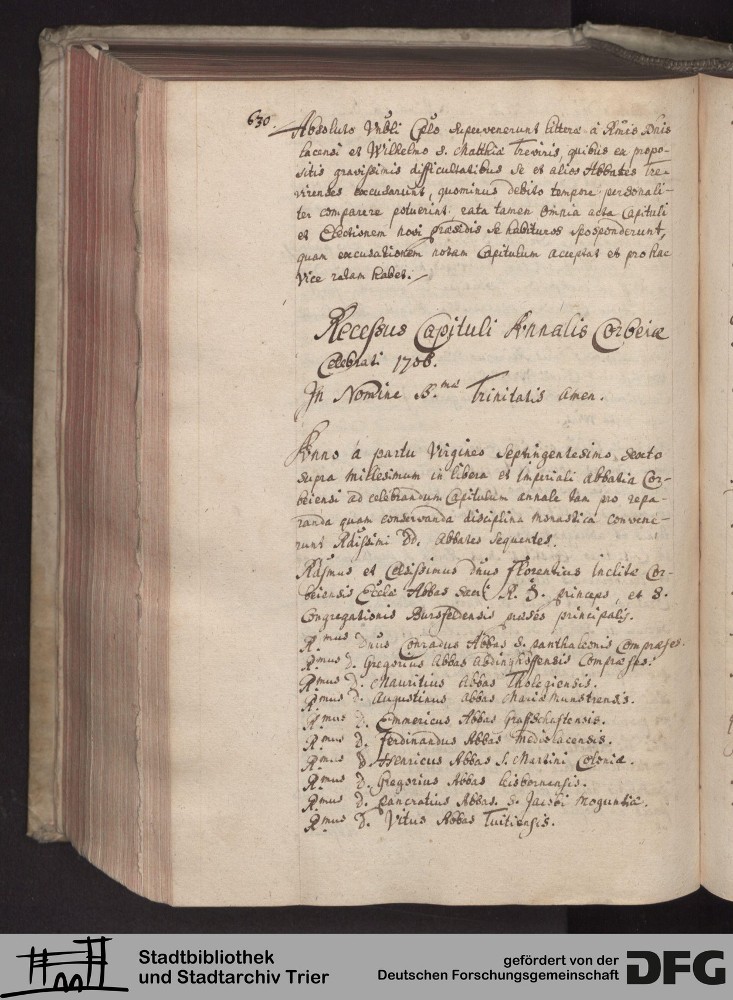 630.
Absoluto Vnbli Cplo supervenerunt litteræ à Rmis Dnis
Lacensi et Wilhelmo S. Matthiæ Treviris, quibus ex propo-
sitis gravissimis difficultatibus se et alios Abbates Tre-
virenses excusarunt, quominus debito tempore personali-
ter comparere potuerint. rata tamen omnia acta Capituli
et Electionem novi præsidis se habituros spoponderunt,
quam excusationem notam Capitulum acceptat et pro hac
vice ratam habet.
Recessus Capituli Annalis Corbeiæ
Celebrati 1706.
In Nomine S.mæ Trinitatis amen.
Anno à partu Virgineo Septingentesimo Sexto
supra millesimum in libera et Imperiali abbatia Cor-
beiensi ad celebrandum Capitulum annale tam pro repa-
randa quam conservanda disciplina monastica convene-
runt Rdissimi DD. Abbates sequentes.
Rdsmus et Celsissimus dnus Florentius Inclitæ Cor-
beiensis Ecclæ Abbas Sacri R. I. princeps, et S.
Congregationis Bursfeldensis præses principalis.
R.mus dnus Conradus Abbas S. panthaleonis Compræses.
R.mus d. Gregorius Abbas Abdinghoffensis Compræses.
R.mus d. Mauritius Abbas Tholegiensis.
R.mus d. Augustinus Abbas Mariæ munstrensis.
R.mus d. Emmericus Abbas Graffschaftensis.
R.mus d. Ferdinandus Abbas mediolacensis.
R.mus d. Henricus Abbas S. Martini Coloniæ.
R.mus d. Gregorius Abbas Lisbornensis.
R.mus d. pancratius Abbas. S. Jacobi moguntiæ.
R.mus d. Vitus Abbas Tuitiensis.
Stadtbibliothek
und Stadtarchiv Trier
gefördert von der
Deutschen Forschungsgemeinschaft
DFG